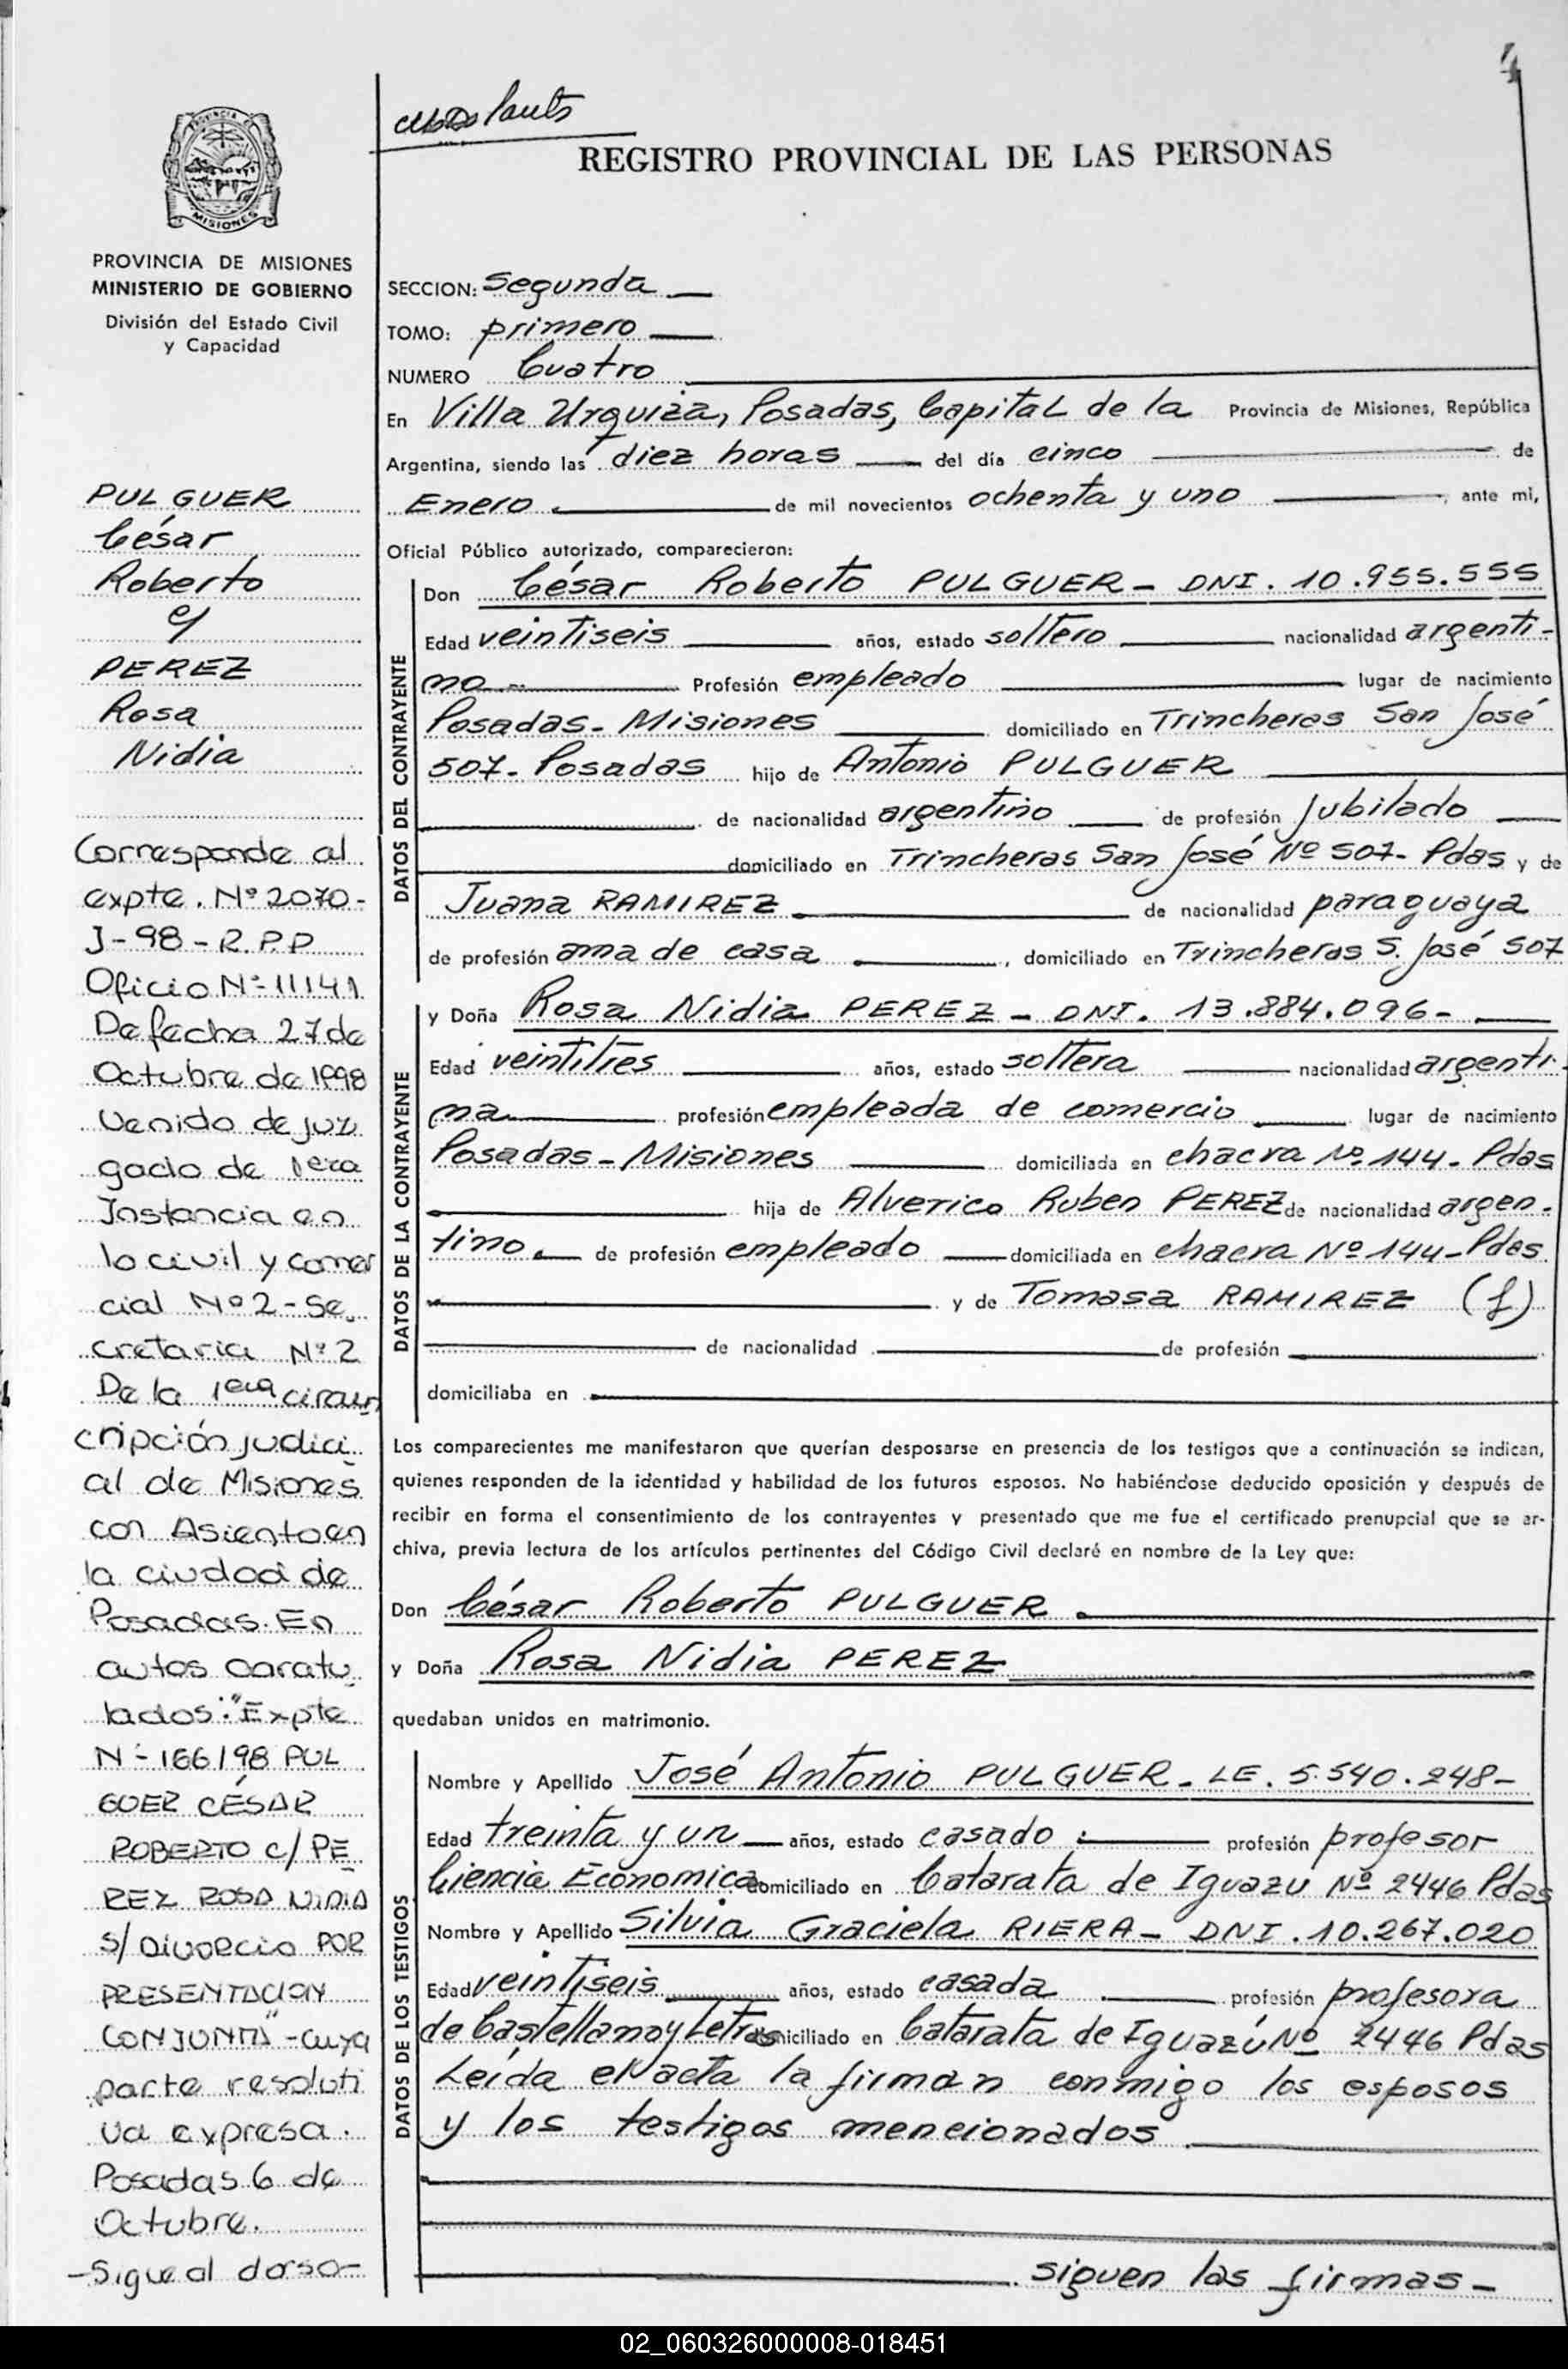 4
REGISTRO PROVINCIAL DE LAS PERSONAS
PROVINCIA DE MISIONES
MINISTERIO DE GOBIERNO
División del Estado Civil
y Capacidad
PULGUER
César
Roberto
y
PEREZ
Rosa
Nidia
Corresponde al
expte. Nº 2070-
J-98-R.P.P
Oficio Nº 11141
De fecha 27 de
Octubre de 1998
Venido de juz
gado de 1era
Instancia en
lo civil y comer
cial Nº 2 - Se
cretaria Nº 2
De la 1era circun
cripción judici
al de Misiones
con Asiento en
la ciudad de
Posadas. En
autos caratu
lados: "Expte
Nº 166/98 PUL
GUER CÉSAR
ROBERTO c/ PE
REZ ROSA NIDIA
S/ Divorcio POR
PRESENTACION
CONJUNTA" - cuya
parte resoluti
va expresa.
Posadas 6 de
Octubre.
-Sigue al dorso-
SECCION: Segunda
TOMO: primero
NUMERO Cuatro
En Villa Urquiza, Posadas, Capital de la Provincia de Misiones, República
Argentina, siendo las diez horas del día cinco de
Enero de mil novecientos ochenta y uno, ante mi,
Oficial Público autorizado, comparecieron:
DATOS DEL CONTRAYENTE
Don César Roberto PULGUER - DNI. 10.955.555
Edad veintiseis años, estado soltero nacionalidad argenti-
no Profesión empleado lugar de nacimiento
Posadas - Misiones domiciliado en Trincheras San José
507 - Posadas hijo de Antonio PULGUER
de nacionalidad argentino de profesión Jubilado
domiciliado en Trincheras San José Nº 507 - Pdas y de
Juana RAMIREZ de nacionalidad paraguaya
de profesión ama de casa, domiciliado en Trincheras S. José 507
DATOS DE LA CONTRAYENTE
y Doña Rosa Nidia PEREZ - DNI. 13.884.096-
Edad veintitres años, estado soltera nacionalidad argenti
na profesión empleada de comercio lugar de nacimiento
Posadas - Misiones domiciliada en chacra Nº 144 - Pdas
hija de Alverico Ruben PEREZ de nacionalidad argen-
tino de profesión empleado domiciliada en chacra Nº 144 - Pdas
y de Tomasa RAMIREZ (f)
de nacionalidad de profesión
domiciliaba en
Los comparecientes me manifestaron que querían desposarse en presencia de los testigos que a continuación se indican,
quienes responden de la identidad y habilidad de los futuros esposos. No habiéndose deducido oposición y después de
recibir en forma el consentimiento de los contrayentes y presentado que me fue el certificado prenupcial que se ar-
chiva, previa lectura de los artículos pertinentes del Código Civil declaré en nombre de la Ley que:
Don César Roberto PULGUER
y Doña Rosa Nidia PEREZ
quedaban unidos en matrimonio.
DATOS DE LOS TESTIGOS
Nombre y Apellido José Antonio PULGUER - LE. 5.540.248-
Edad treinta y un años, estado casado profesión profesor
Ciencia Económica domiciliado en Catarata de Iguazu Nº 2446 Pdas
Nombre y Apellido Silvia Graciela RIERA - DNI. 10.267.020
Edad veintiseis años, estado casada profesión profesora
de Castellano y Letras domiciliado en Catarata de Iguazú Nº 2446 Pdas
Leída el acta la firman conmigo los esposos
y los testigos mencionados
siguen las firmas -
02_060326000008-018451